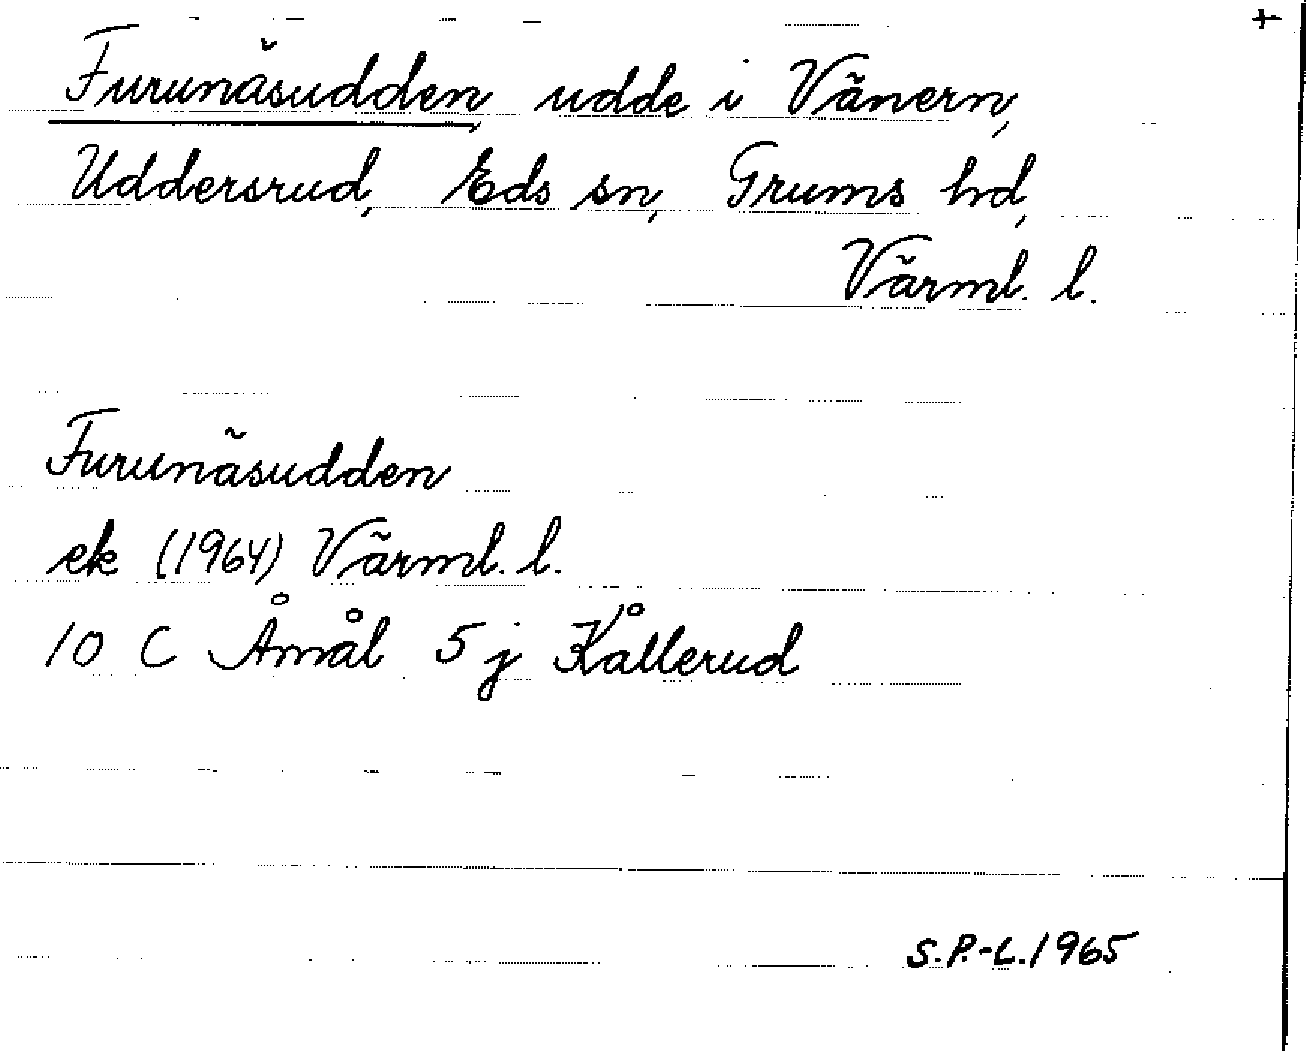 +
Furunäsudden, udde i Vänern,
Uddersrud, Eds sn, Grums hd,
Värml. l.
Furunäsudden
ek (1964) Värml. l.
10 C Åmål 5 j Kållerud
S.P.-L. 1965